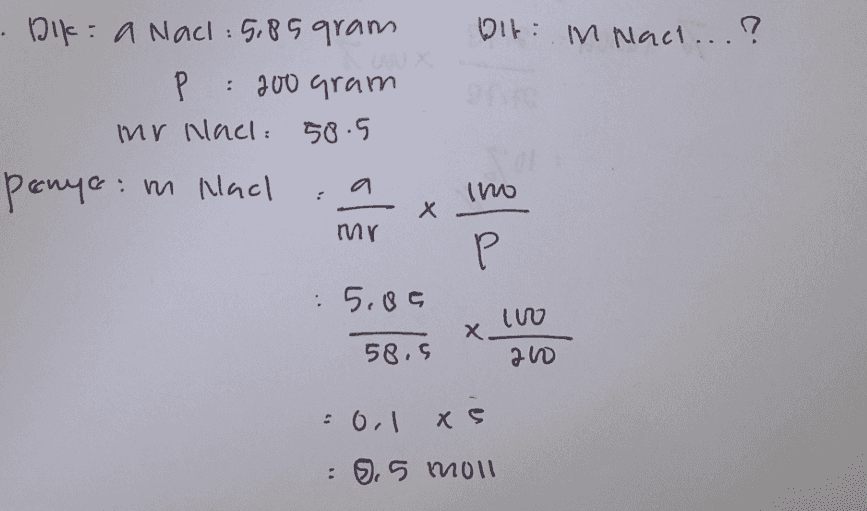 . Dik : a Nacl : 5,85 gram Dit : m Nacl ... ?
p : 200 gram
mr Nacl : 58.5
penye : m Nacl : a/mr x 1000/p
: 5,85/58,5 x 1000/200
= 0,1 x 5
: 0,5 moll